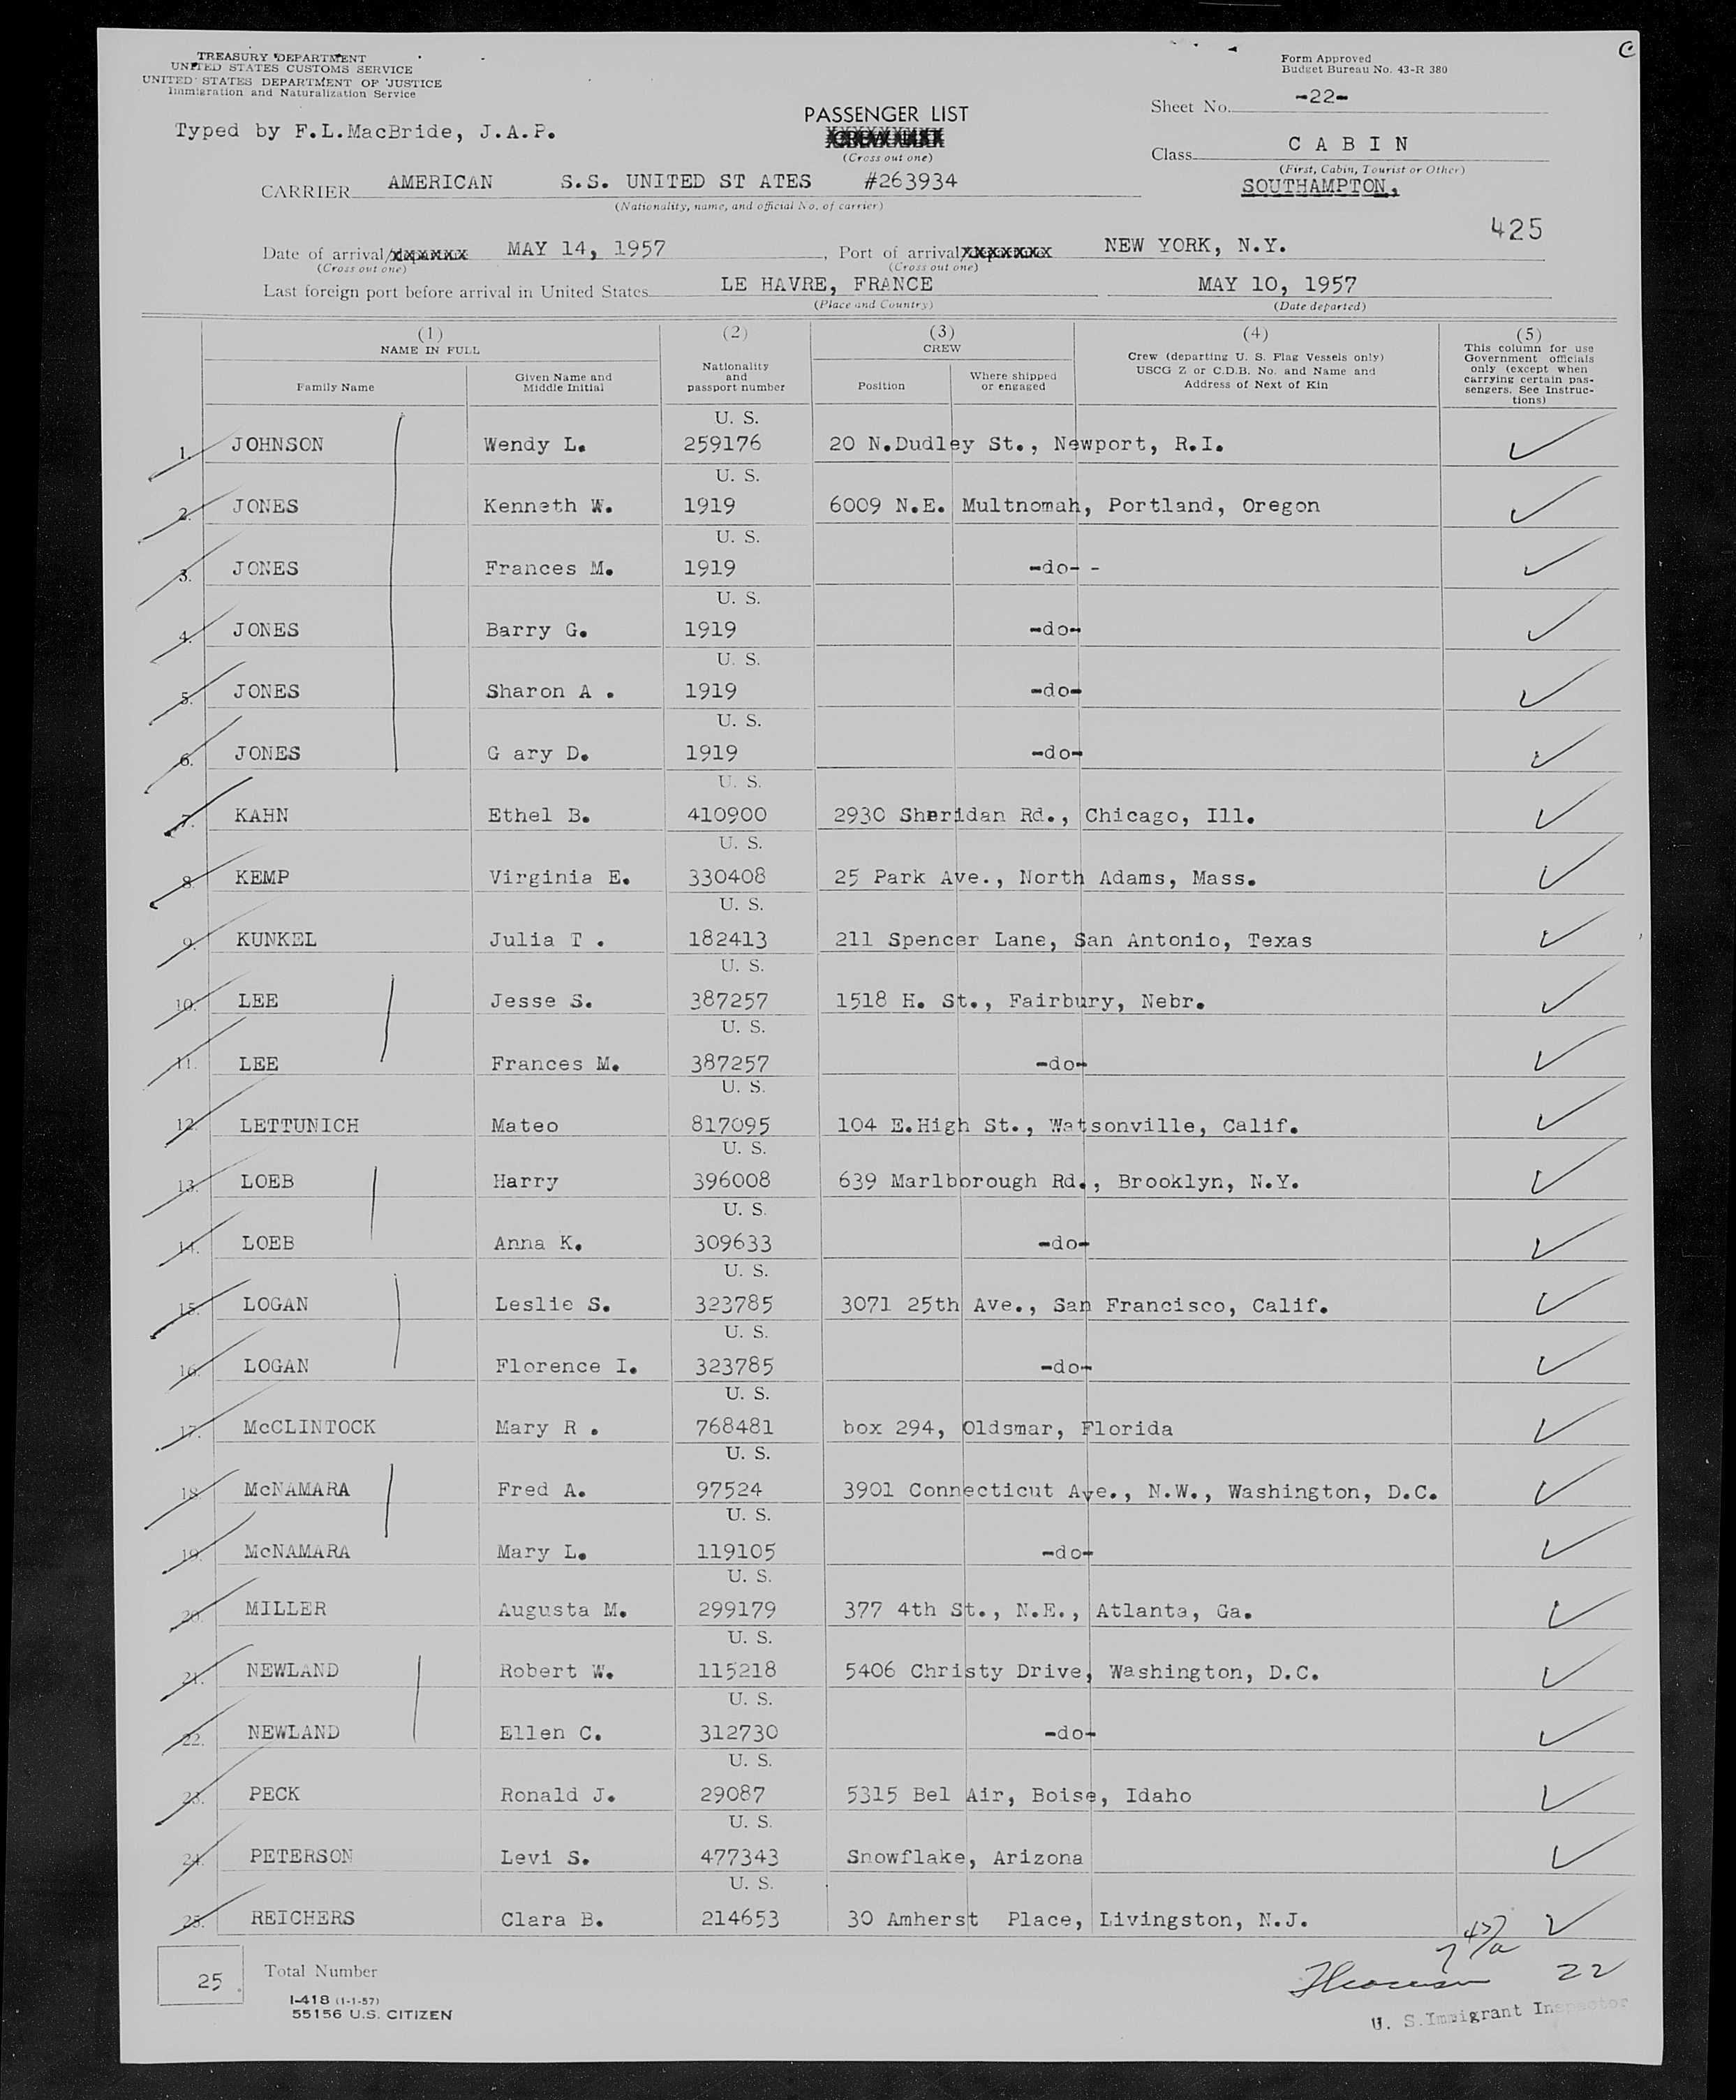 C
TREASURY DEPARTMENT
UNITED STATES CUSTOMS SERVICE
UNITED STATES DEPARTMENT OF JUSTICE
Immigration and Naturalization Service
Form Approved
Budget Bureau No. 43-R 380
Typed by F.L.MacBride, J.A.P.
PASSENGER LIST
(Cross out one)
Sheet No. -22-
Class C A B I N
(First, Cabin, Tourist or Other)
SOUTHAMPTON,
CARRIER AMERICAN S.S. UNITED ST ATES #263934
(Nationality, name, and official No. of carrier)
425
Date of arrival/ MAY 14, 1957, Port of arrival/ NEW YORK, N.Y.
(Cross out one) (Cross out one)
Last foreign port before arrival in United States LE HAVRE, FRANCE MAY 10, 1957
(Place and Country) (Date departed)
(1) (2) (3) (4) (5)
NAME IN FULL Nationality and passport number CREW Crew (departing U. S. Flag Vessels only) USCG Z or C.D.B. No. and Name and Address of Next of Kin This column for use Government officials only (except when carrying certain passengers. See Instructions)
Family Name Given Name and Middle Initial Position Where shipped or engaged
U. S.
1. JOHNSON Wendy L. 259176 20 N.Dudley St., Newport, R.I.
U. S.
2. JONES Kenneth W. 1919 6009 N.E. Multnomah, Portland, Oregon
U. S.
3. JONES Frances M. 1919 -do- -
U. S.
4. JONES Barry G. 1919 -do-
U. S.
5. JONES Sharon A . 1919 -do-
U. S.
6. JONES G ary D. 1919 -do-
U. S.
7. KAHN Ethel B. 410900 2930 Sheridan Rd., Chicago, Ill.
U. S.
8. KEMP Virginia E. 330408 25 Park Ave., North Adams, Mass.
U. S.
9. KUNKEL Julia T . 182413 211 Spencer Lane, San Antonio, Texas
U. S.
10. LEE Jesse S. 387257 1518 H. St., Fairbury, Nebr.
U. S.
11. LEE Frances M. 387257 -do-
U. S.
12. LETTUNICH Mateo 817095 104 E.High St., Watsonville, Calif.
U. S.
13. LOEB Harry 396008 639 Marlborough Rd., Brooklyn, N.Y.
U. S.
14. LOEB Anna K. 309633 -do-
U. S.
15. LOGAN Leslie S. 323785 3071 25th Ave., San Francisco, Calif.
U. S.
16. LOGAN Florence I. 323785 -do-
U. S.
17. McCLINTOCK Mary R . 768481 box 294, Oldsmar, Florida
U. S.
18. McNAMARA Fred A. 97524 3901 Connecticut Ave., N.W., Washington, D.C.
U. S.
19. McNAMARA Mary L. 119105 -do-
U. S.
20. MILLER Augusta M. 299179 377 4th St., N.E., Atlanta, Ga.
U. S.
21. NEWLAND Robert W. 115218 5406 Christy Drive, Washington, D.C.
U. S.
22. NEWLAND Ellen C. 312730 -do-
U. S.
23. PECK Ronald J. 29087 5315 Bel Air, Boise, Idaho
U. S.
24. PETERSON Levi S. 477343 Snowflake, Arizona
U. S.
25. REICHERS Clara B. 214653 30 Amherst Place, Livingston, N.J.
25 Total Number
22
I-418 (1-1-57)
55156 U.S. CITIZEN
U. S.Immigrant Inspector